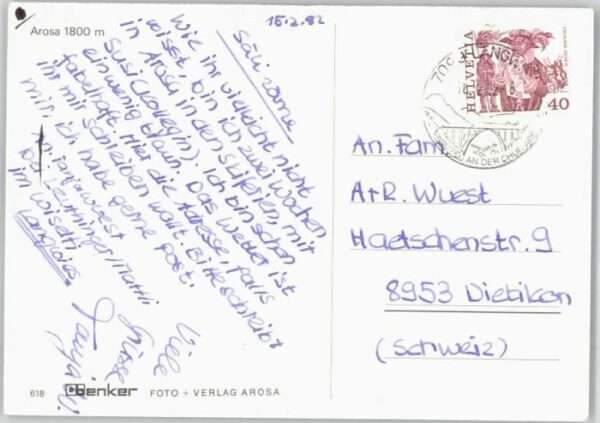 Arosa 1800 m
15.2.82
Säli zäme
Wie ihr vielleicht nicht
wisst, bin ich zwei Wochen
in Arosa in den Skiferien, mit
Susi(Kollegin). Ich bin schon
ein wenig braun. Das Wetter ist
fabelhaft. Hier die Adresse, falls
ihr mir schreiben wollt. Bitte schreibt
mir, ich habe gerne Post.
Tanja Wüest
Leutninger/Mattli
im Wiseli
Langwies
Viele
Grüsse
Tanja W.
HELVETIA
40
LANGWIES
AN DER CHUR
An. Fam
A+R. Wuest
Haetschenstr. 9
8953 Dietikon
(Schweiz)
618 benker FOTO + VERLAG AROSA